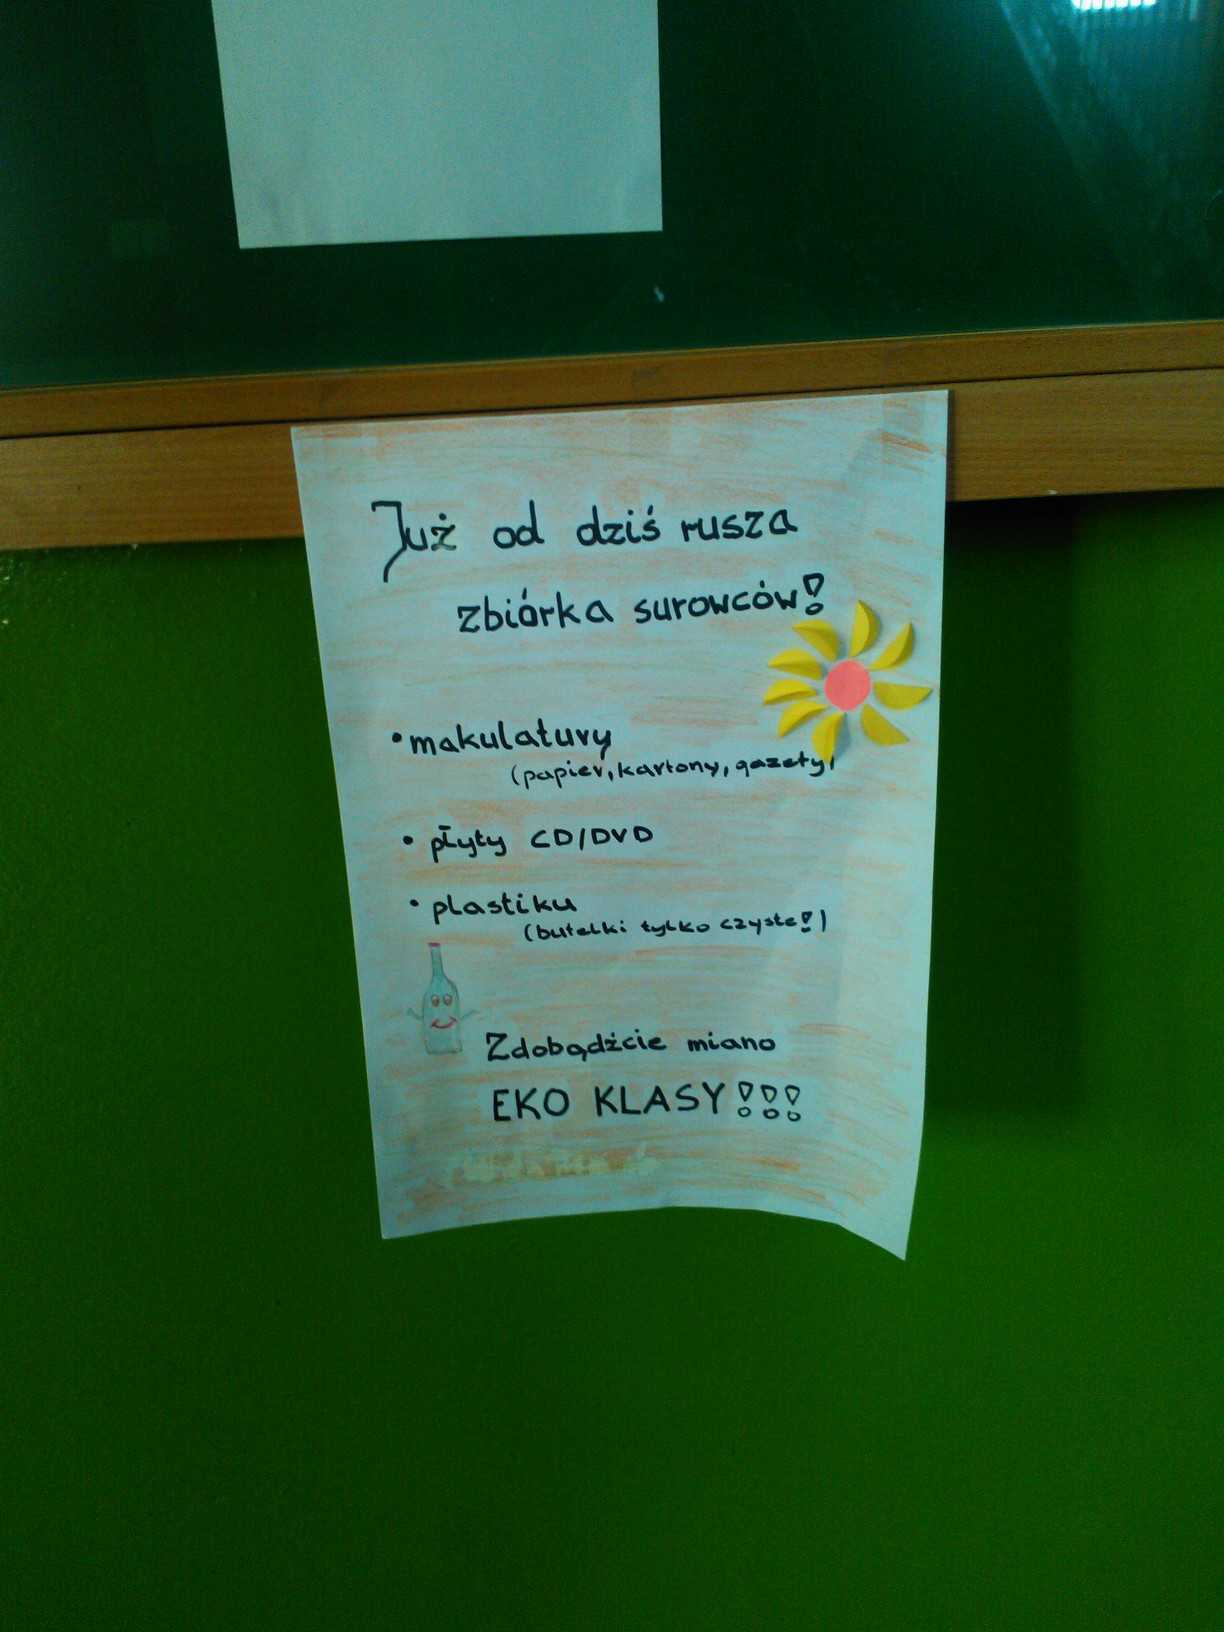 Już od dziś rusza
zbiórka surowców!
• makulatury
(papier, kartony, gazety)
• płyty CD/DVD
• plastiku
(butelki tylko czyste!)
Zdobądźcie miano
EKO KLASY!!!